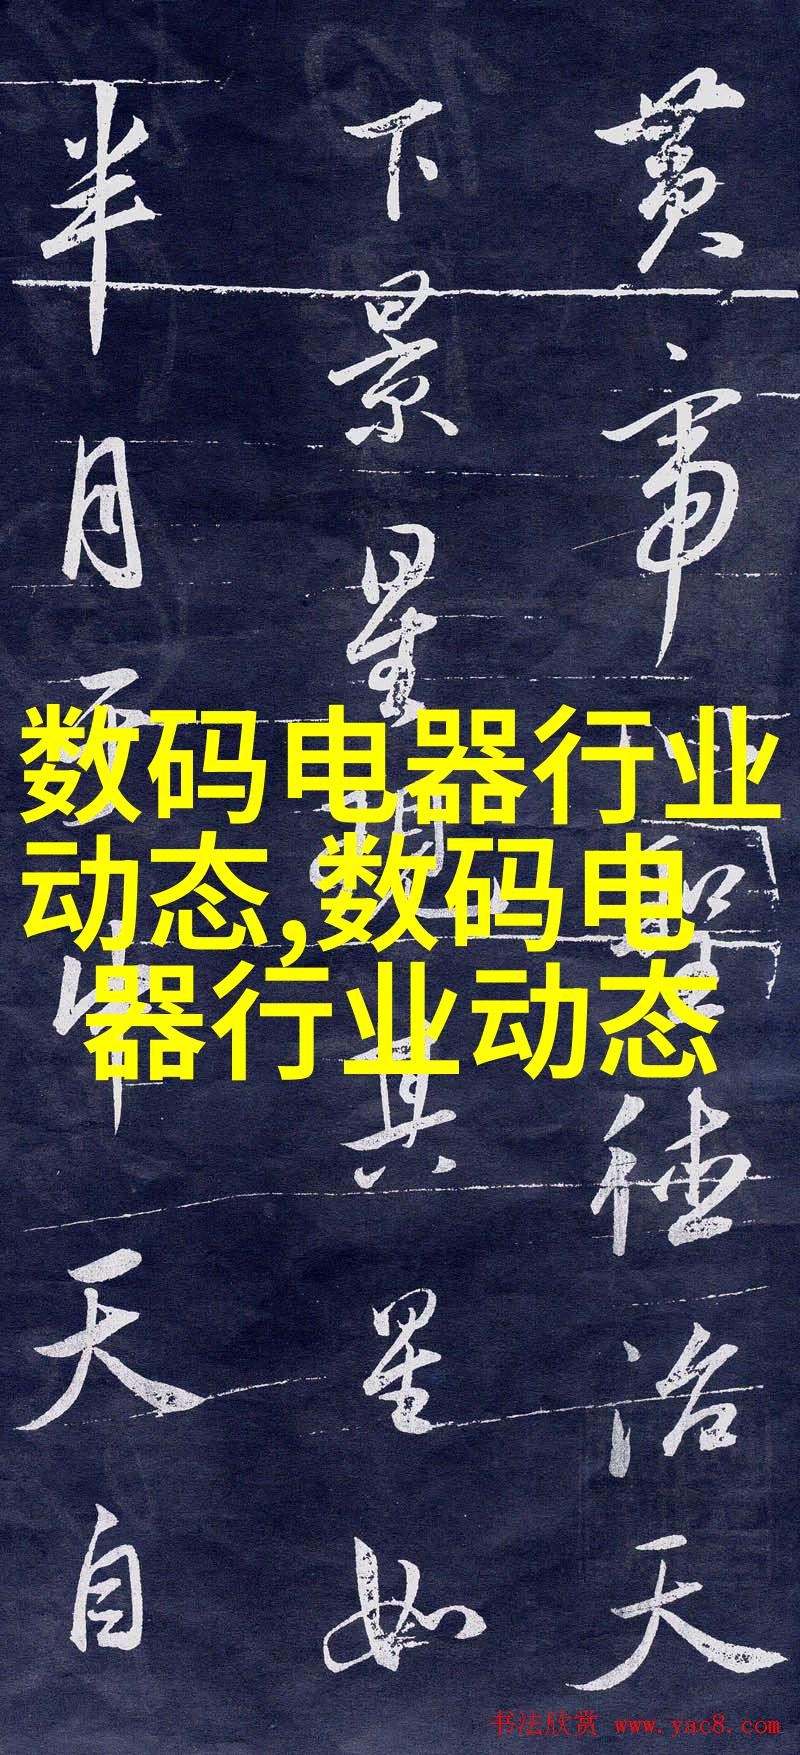 黄帝以聖德治天
下景星現其星如
半月中天自
数码电器行业
动态,数码电
器行业动态
书法欣赏 www.yac8.com